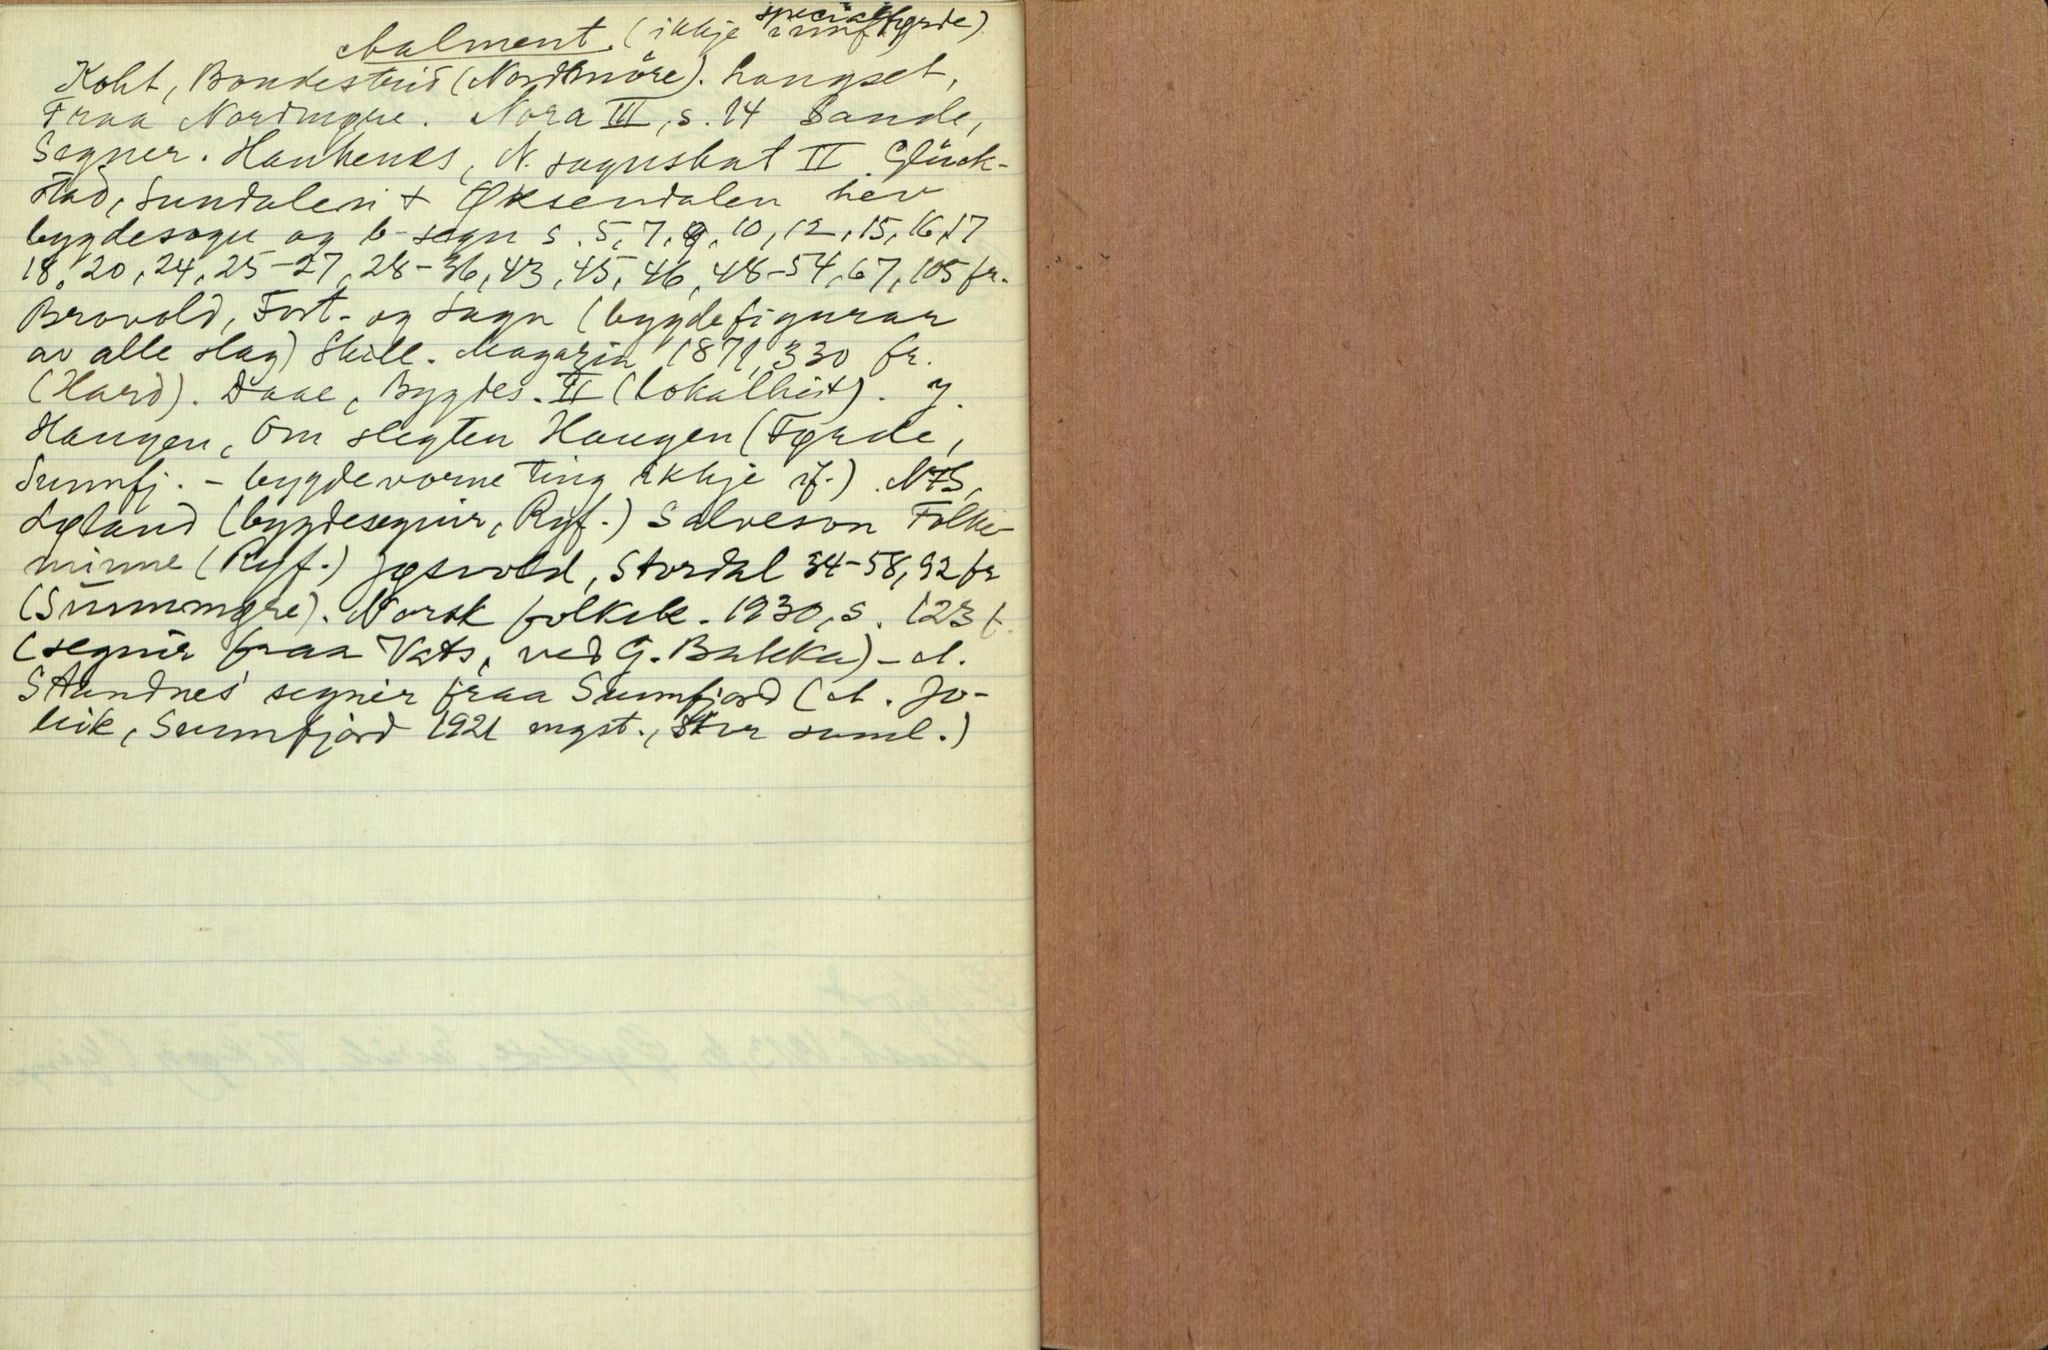 Aalment. (ikkje specialførde)
Koht, Bondestrid (Nordmöre). Langset,
Fraa Nordmøre. Nora III, s. 14 Sande,
Segner. Haukenes, N. sagnskat II. Glück-
stad, Sundalen + Øksendalen hev
bygdesogu og b-segn s. 5, 7, 9, 10, 12, 15, 16, 17
18, 20, 24, 25-27, 28-36, 43, 45, 46, 48-54, 67, 105 fr.
Brovold, Fort- og Sagn (bygdefigurar
av alle slag) Skill. Magazin 1871, 330 fr.
(Hard). Daae, Bygdes. II (lokalhist).
Haugen, Om slegten Haugen (Førde,
Sunnfj. - bygdevorne ting ikkje if.) NFS,
Løland (bygdesegnir, Ryf.) Salveson Folke-
minne (Ryf.) Jøsvold, Stordal 34-58, 92 fr
(Sunnmøre). Norsk folkek. 1930, s. 123 f.
(segnir fraa Vats, ved G. Bakka) - A.
Standnes' segnir fraa Sunnfjord (A. Jo-
leik, Sunnfjord 1921 mgst., Stor saml.)